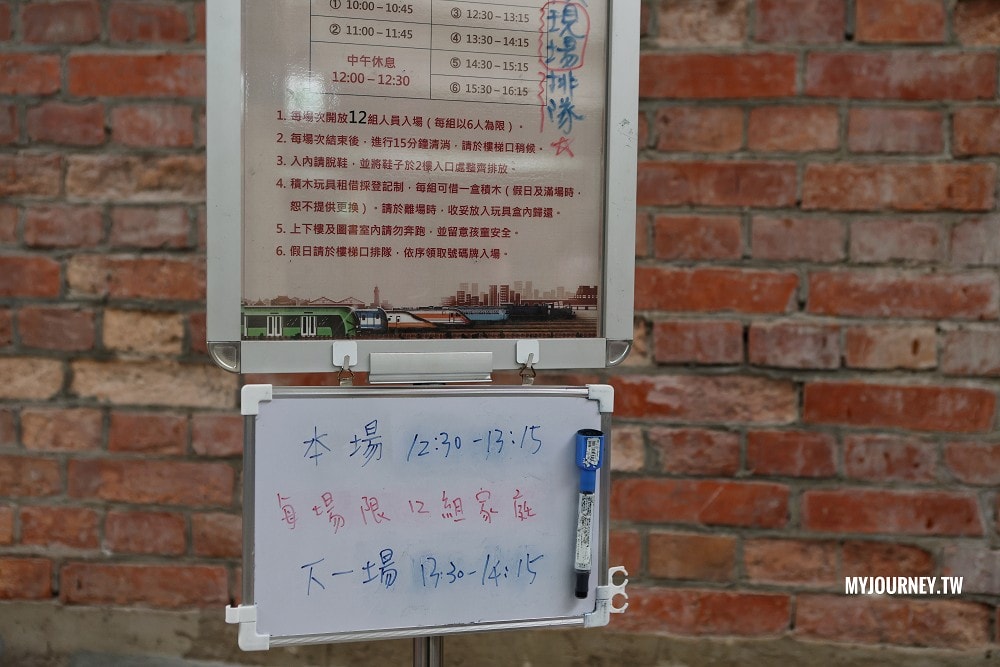 ① 10:00－10:45
② 11:00－11:45
中午休息
12:00－12:30
③ 12:30－13:15
④ 13:30－14:15
⑤ 14:30－15:15
⑥ 15:30－16:15
現場排隊
1. 每場次開放12組人員入場（每組以6人為限）。
2. 每場次結束後，進行15分鐘清消，請於樓梯口稍候。
3. 入內請脫鞋，並將鞋子於2樓入口處整齊排放。
4. 積木玩具租借採登記制，每組可借一盒積木（假日及滿場時，
恕不提供更換）。請於離場時，收妥放入玩具盒內歸還。
5. 上下樓及圖書室內請勿奔跑，並留意孩童安全。
6. 假日請於樓梯口排隊，依序領取號碼牌入場。
本場 12:30-13:15
每場限12組家庭
下一場 13:30-14:15
MYJOURNEY.TW